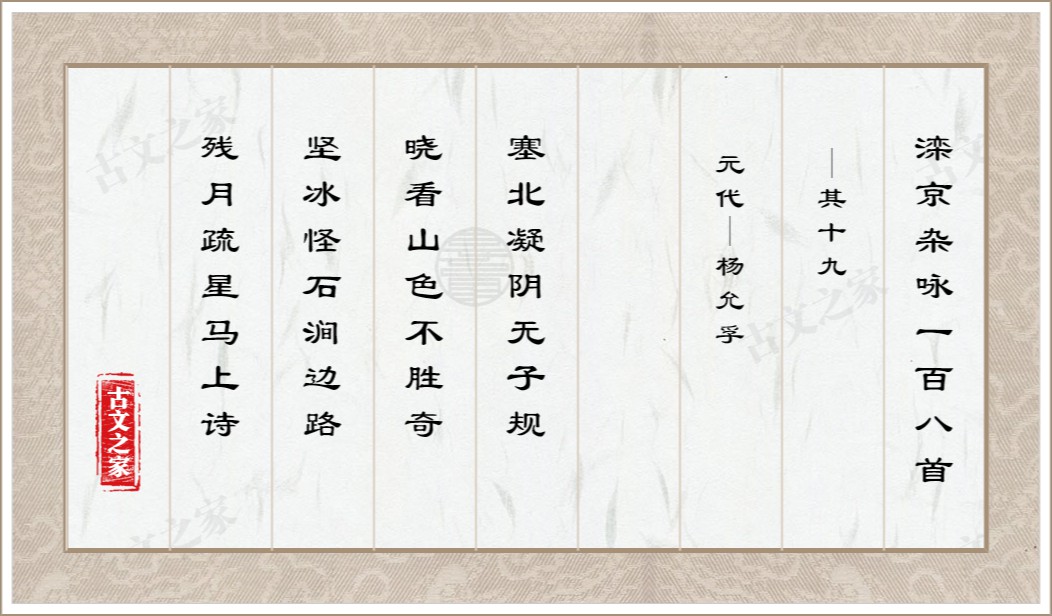 滦京杂咏一百八首
—其十九
元代—杨允孚
塞北凝阴无子规
晓看山色不胜奇
坚冰怪石涧边路
残月疏星马上诗
古文之家
古文之家
古文之家
古文之家